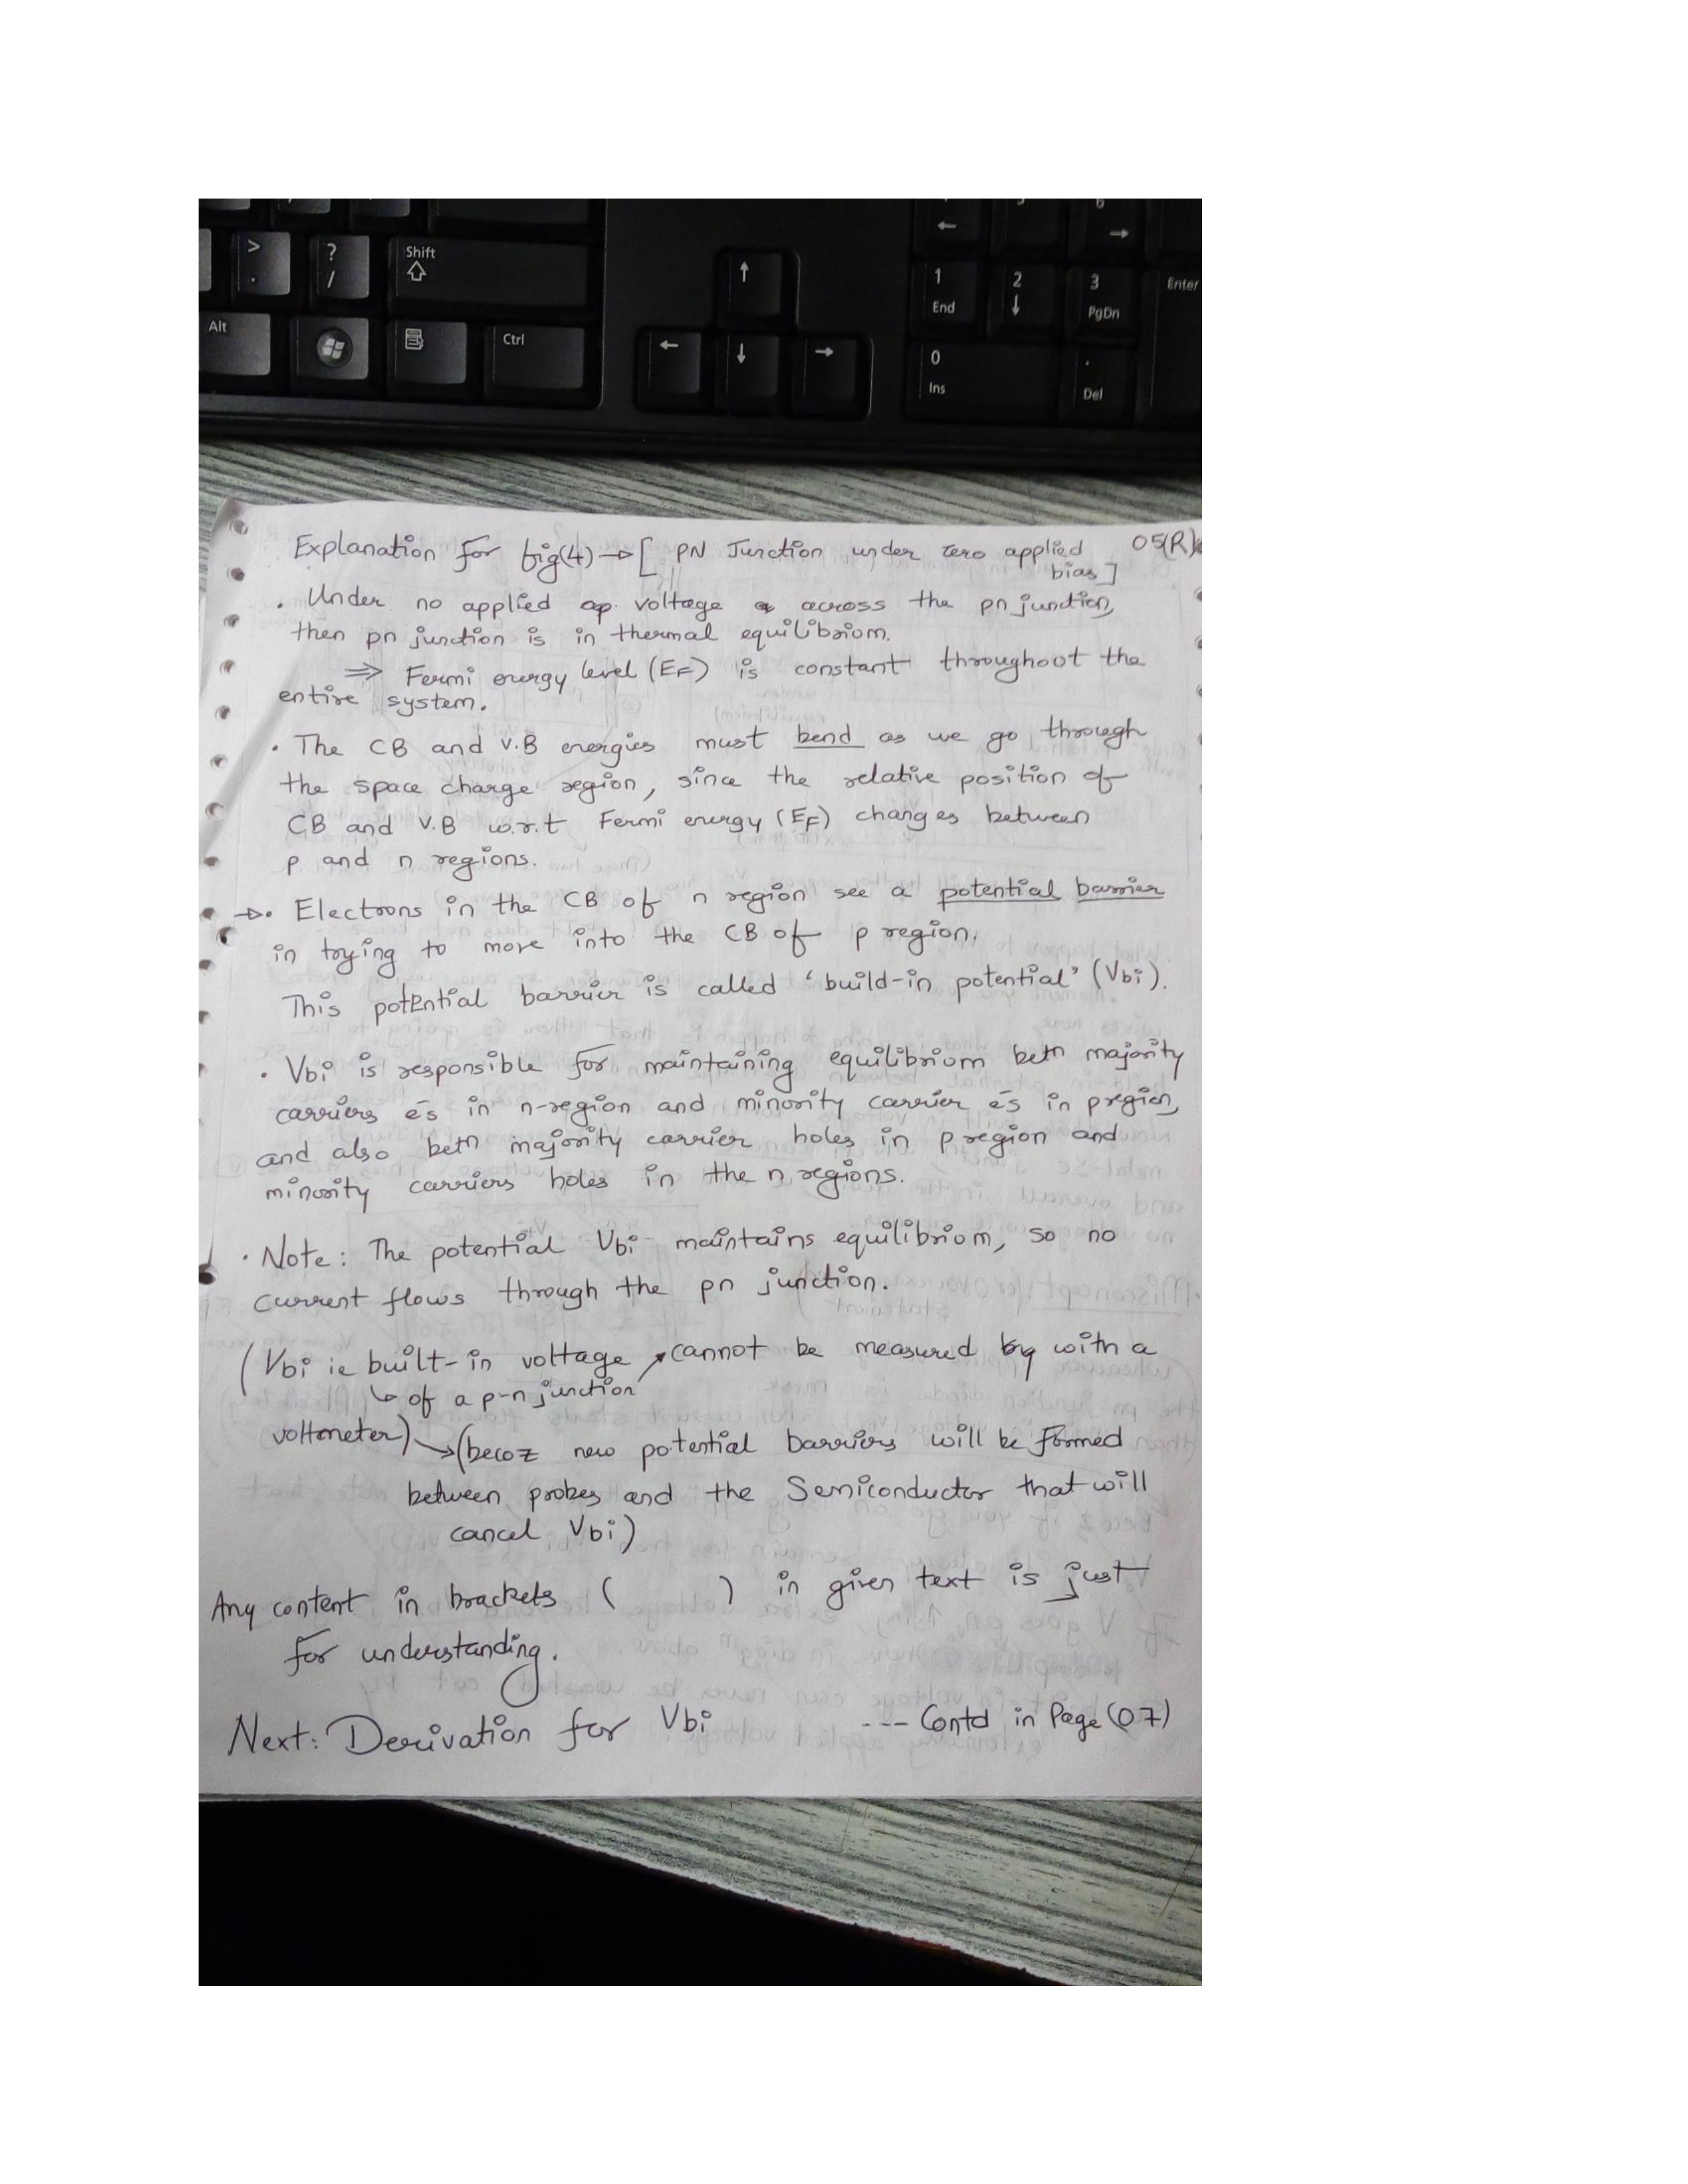 > 
.
?
/
Shift
Alt
Ctrl
6
1
End
2
3
PgDn
Enter
0
Ins
.
Del
Explanation for fig(4) → [ PN Junction under zero applied 05(R)
bias]
. Under no applied voltage across the pn junction,
then pn junction is in thermal equilibrium.
⇒ Fermi energy level (EF) is constant throughout the
entire system.
. The CB and V.B energies must bend as we go through
the space charge region, since the relative position of
CB and V.B w.r.t Fermi energy (EF) changes between
p and n regions.
→. Electrons in the CB of n region see a potential barrier
in trying to move into the CB of p region.
This potential barrier is called 'build-in potential' (Vbi).
. Vbi is responsible for maintaining equilibrium betn majority
carriers e̅s in n-region and minority carrier e̅s in p region,
and also betn majority carrier holes in p region and
minority carriers holes in the n regions.
. Note: The potential Vbi maintains equilibrium, so no
current flows through the pn junction.
(Vbi ie built-in voltage ↗ cannot be measured with a
↳ of a p-n junction
voltmeter) → (becoz new potential barriers will be formed
between probes and the Semiconductor that will
cancel Vbi)
Any content in brackets ( ) in given text is just
for understanding.
Next: Derivation for Vbi --- Contd in Page (07)